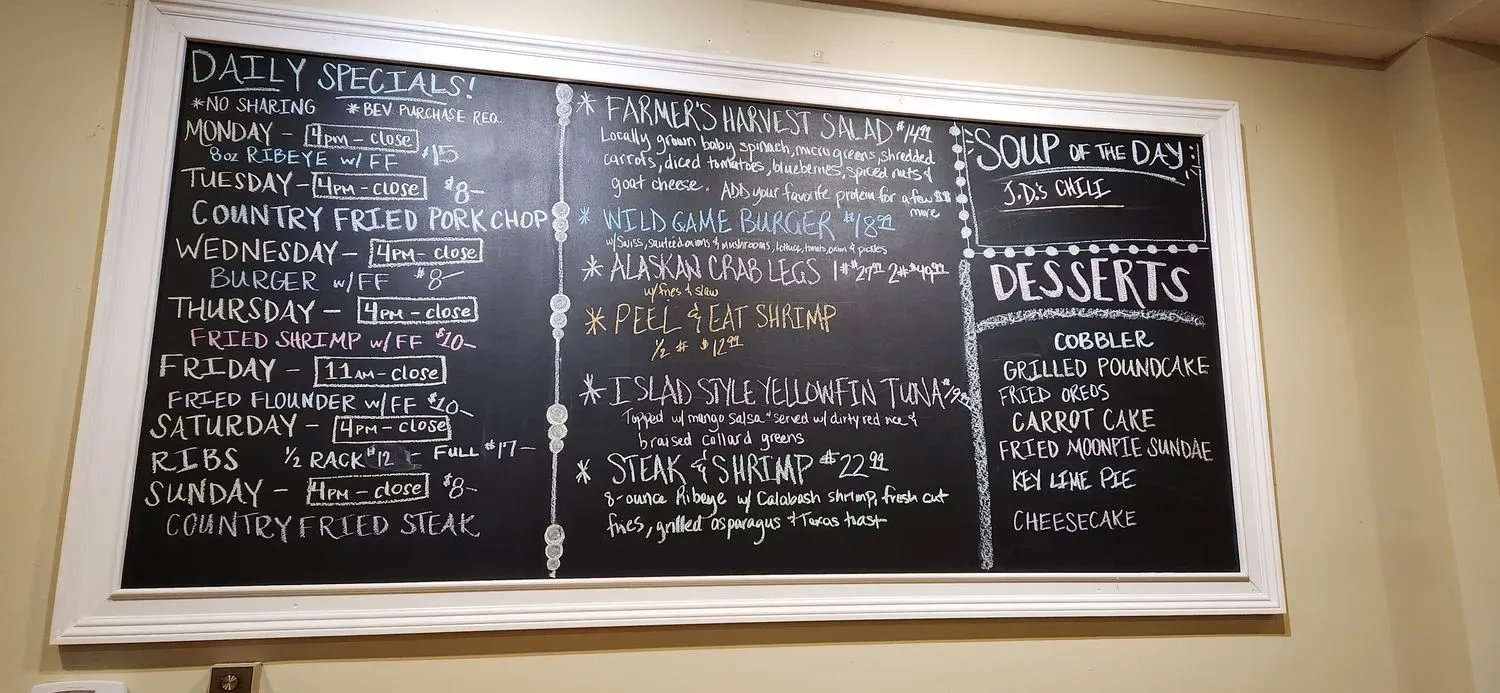 DAILY SPECIALS!
*NO SHARING *BEV PURCHASE REQ.
MONDAY - 4PM - close
8oz RIBEYE w/ FF $15
TUESDAY - 4PM - close $8-
COUNTRY FRIED PORK CHOP
WEDNESDAY - 4PM - close
BURGER w/ FF $8-
THURSDAY - 4PM - close
FRIED SHRIMP w/ FF $10-
FRIDAY - 11AM - close
FRIED FLOUNDER w/ FF $10-
SATURDAY - 4PM - close
RIBS 1/2 RACK $12 - FULL $17-
SUNDAY - 4PM - close $8-
COUNTRY FRIED STEAK
* FARMER'S HARVEST SALAD $14.99
Locally grown baby spinach, micro greens, shredded
carrots, diced tomatoes, blueberries, spiced nuts &
goat cheese. ADD your favorite protein for a few $$$
more
* WILD GAME BURGER $18.99
w/ Swiss, sauteed onions & mushrooms, lettuce, tomato, onion & pickles
* ALASKAN CRAB LEGS 1# $27.99 2# $49.99
w/ fries & slaw
* PEEL & EAT SHRIMP
1/2 # $12.99
* ISLAD STYLE YELLOWFIN TUNA
Topped w/ mango salsa & served w/ dirty red rice &
braised collard greens
* STEAK & SHRIMP $22.99
8-ounce Ribeye w/ Calabash shrimp, fresh cut
fries, grilled asparagus & Texas toast
SOUP OF THE DAY:
J.D.'s CHILI
DESSERTS
COBBLER
GRILLED POUNDCAKE
FRIED OREOS
CARROT CAKE
FRIED MOONPIE SUNDAE
KEY LIME PIE
CHEESECAKE